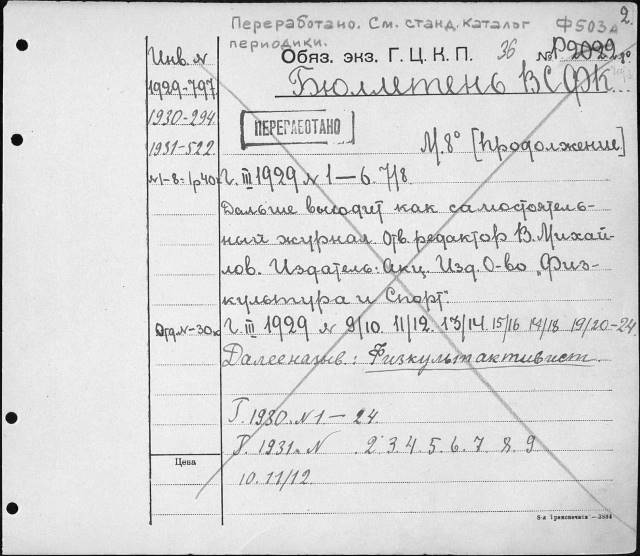 2.
Переработано. См. станд. каталог Ф503А
периодики.
Обяз. экз. Г. Ц. К. П. 36 № Р2022
Инв. №
Бюллетень ВСФК
1929-797
1930-294
ПЕРЕРАБОТАНО
1931-522
М. 8° [продолжение]
№1-8=1р40к Г. III 1929 № 1—6. 7/8.
Дальше выходит как самостоятель-
ный журнал. Отв. редактор В. Михай-
лов. Издатель: Акц. Изд. О-во „Физ-
культура и Спорт".
Отд. №-30к Г. III 1929 № 9/10. 11/12. 13/14. 15/16 17/18 19/20-24.
Далее назыв.: Физкультактивист.
Г. 1930. № 1—24
Г. 1931. № 2. 3. 4. 5. 6. 7 8. 9
Цена
10. 11/12
3884